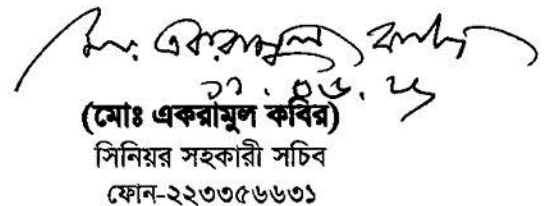 মোঃ একরামুল কবির
(মোঃ একরামুল কবির)
সিনিয়র সহকারী সচিব
ফোন-২২৩৩৫৬৬৩১